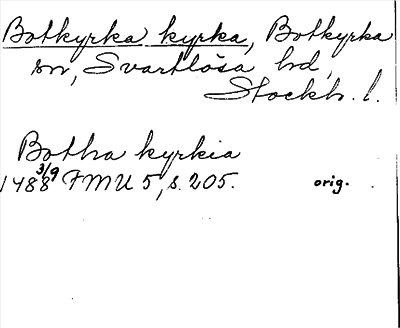 Botkyrka kyrka, Botkyrka
sn, Svartlösa hd,
Stockh. l.
Bothra kyrkia
1488 3/9 FMU 5, s. 205. orig.